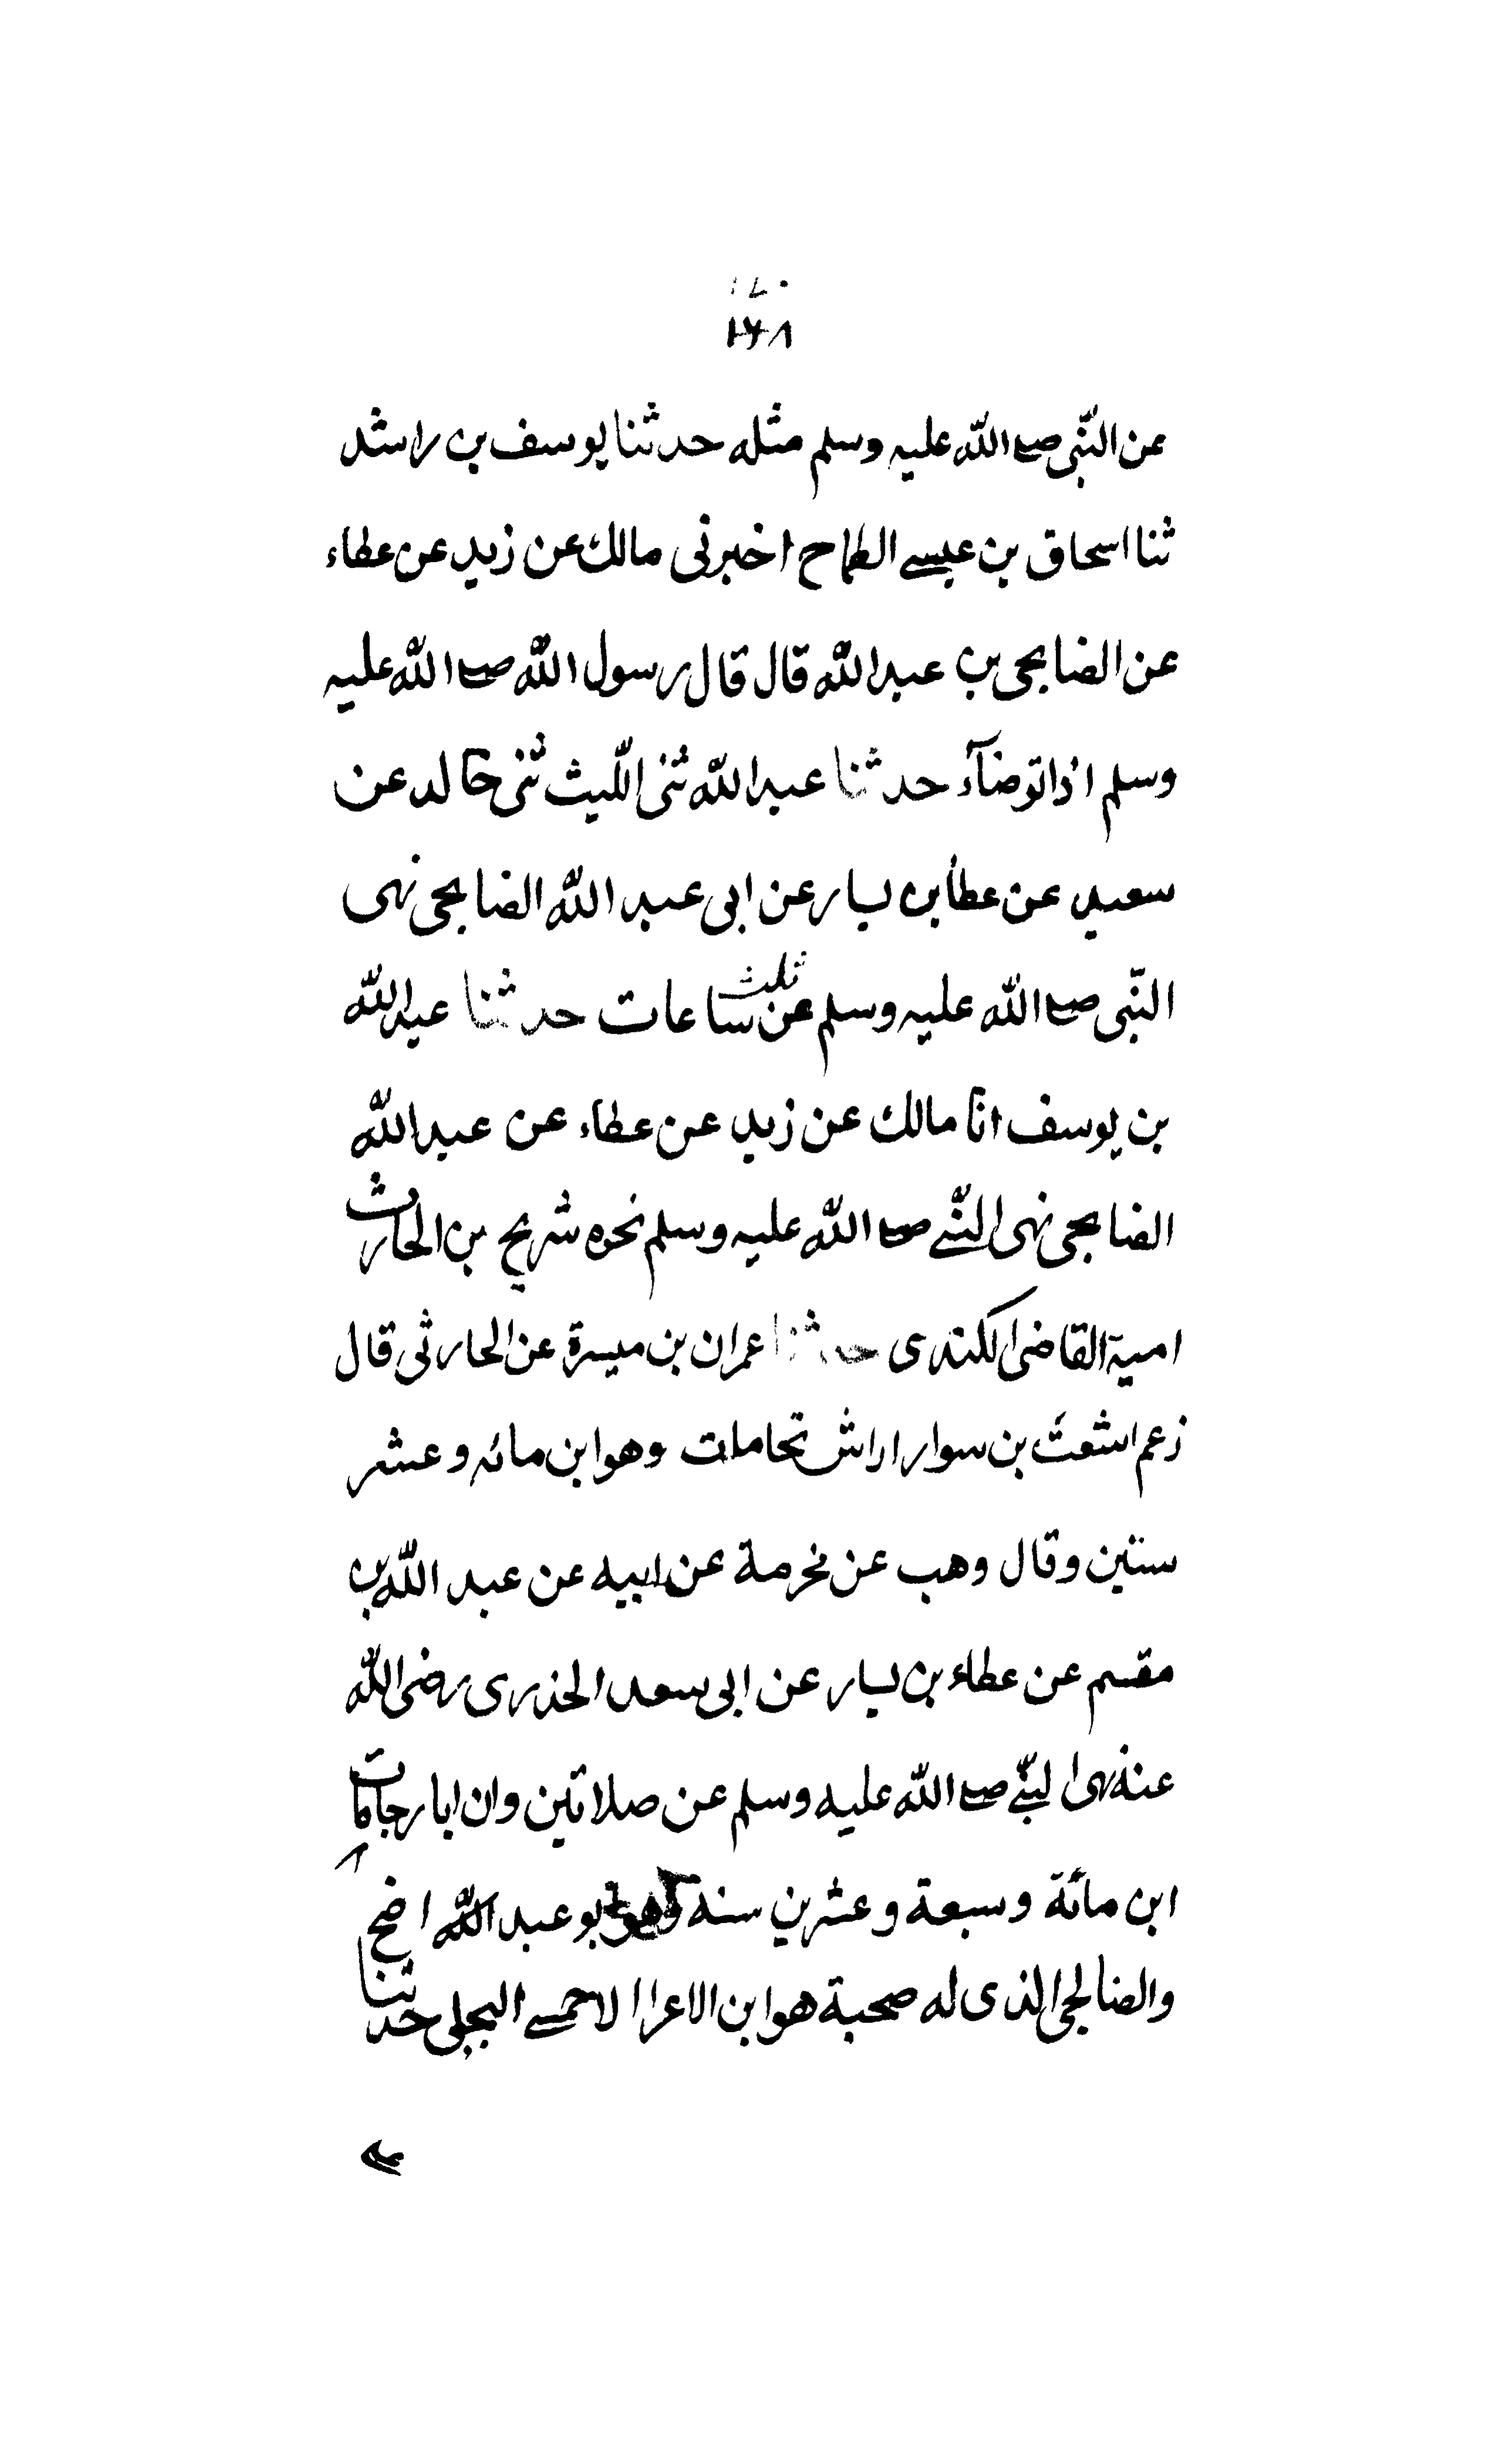 ١٧٠
١٦٨
عن النّبی صلے اللّٰه علیه وسلم مثله حدثنا یوسف بن راشد
ثنا اسحاق بن عیسے الطماح اخبرنی مالك عن زید عن عطاء
عن الضابحی بن عبداللّٰه قال قال رسول اللّٰه صلے اللّٰه علیه
وسلم اذا توضآء حدثنا عبداللّٰه ثنی اللّیث ثنی خالد عن
سعید عن عطأ بن یسار عن ابی عبد اللّٰه الضابحی نهی
النّبی صلے اللّٰه علیه وسلم عن ثلث ساعات حدثنا عبداللّٰه
بن یوسف انا مالك عن زید عن عطاء عن عبداللّٰه
الضابحی نهی النّبے صلے اللّٰه علیه وسلم نحوه شریح بن الحارث
امیة القاضی الکندی حدثنا عمران بن میسرة عن الحارثی قال
زعم اشعث بن سوار اراش تحامات وهو ابن مائه وعشر
سنتین وقال وهب عن مخرمة عن ابیه عن عبد اللّٰه بن
مقسم عن عطاء بن یسار عن ابی سعد الخذری رضی اللّٰه
عنه نهی النبّے صلے اللّٰه علیه وسلم عن صلاتین وان ابا رجامات
ابن مائة وسبعة وعشرین سنة ابو عبد اللّٰه اضح
والضالحی الذی له صحبة هو ابن الاعرا الاحمسے البجلی حدثنا